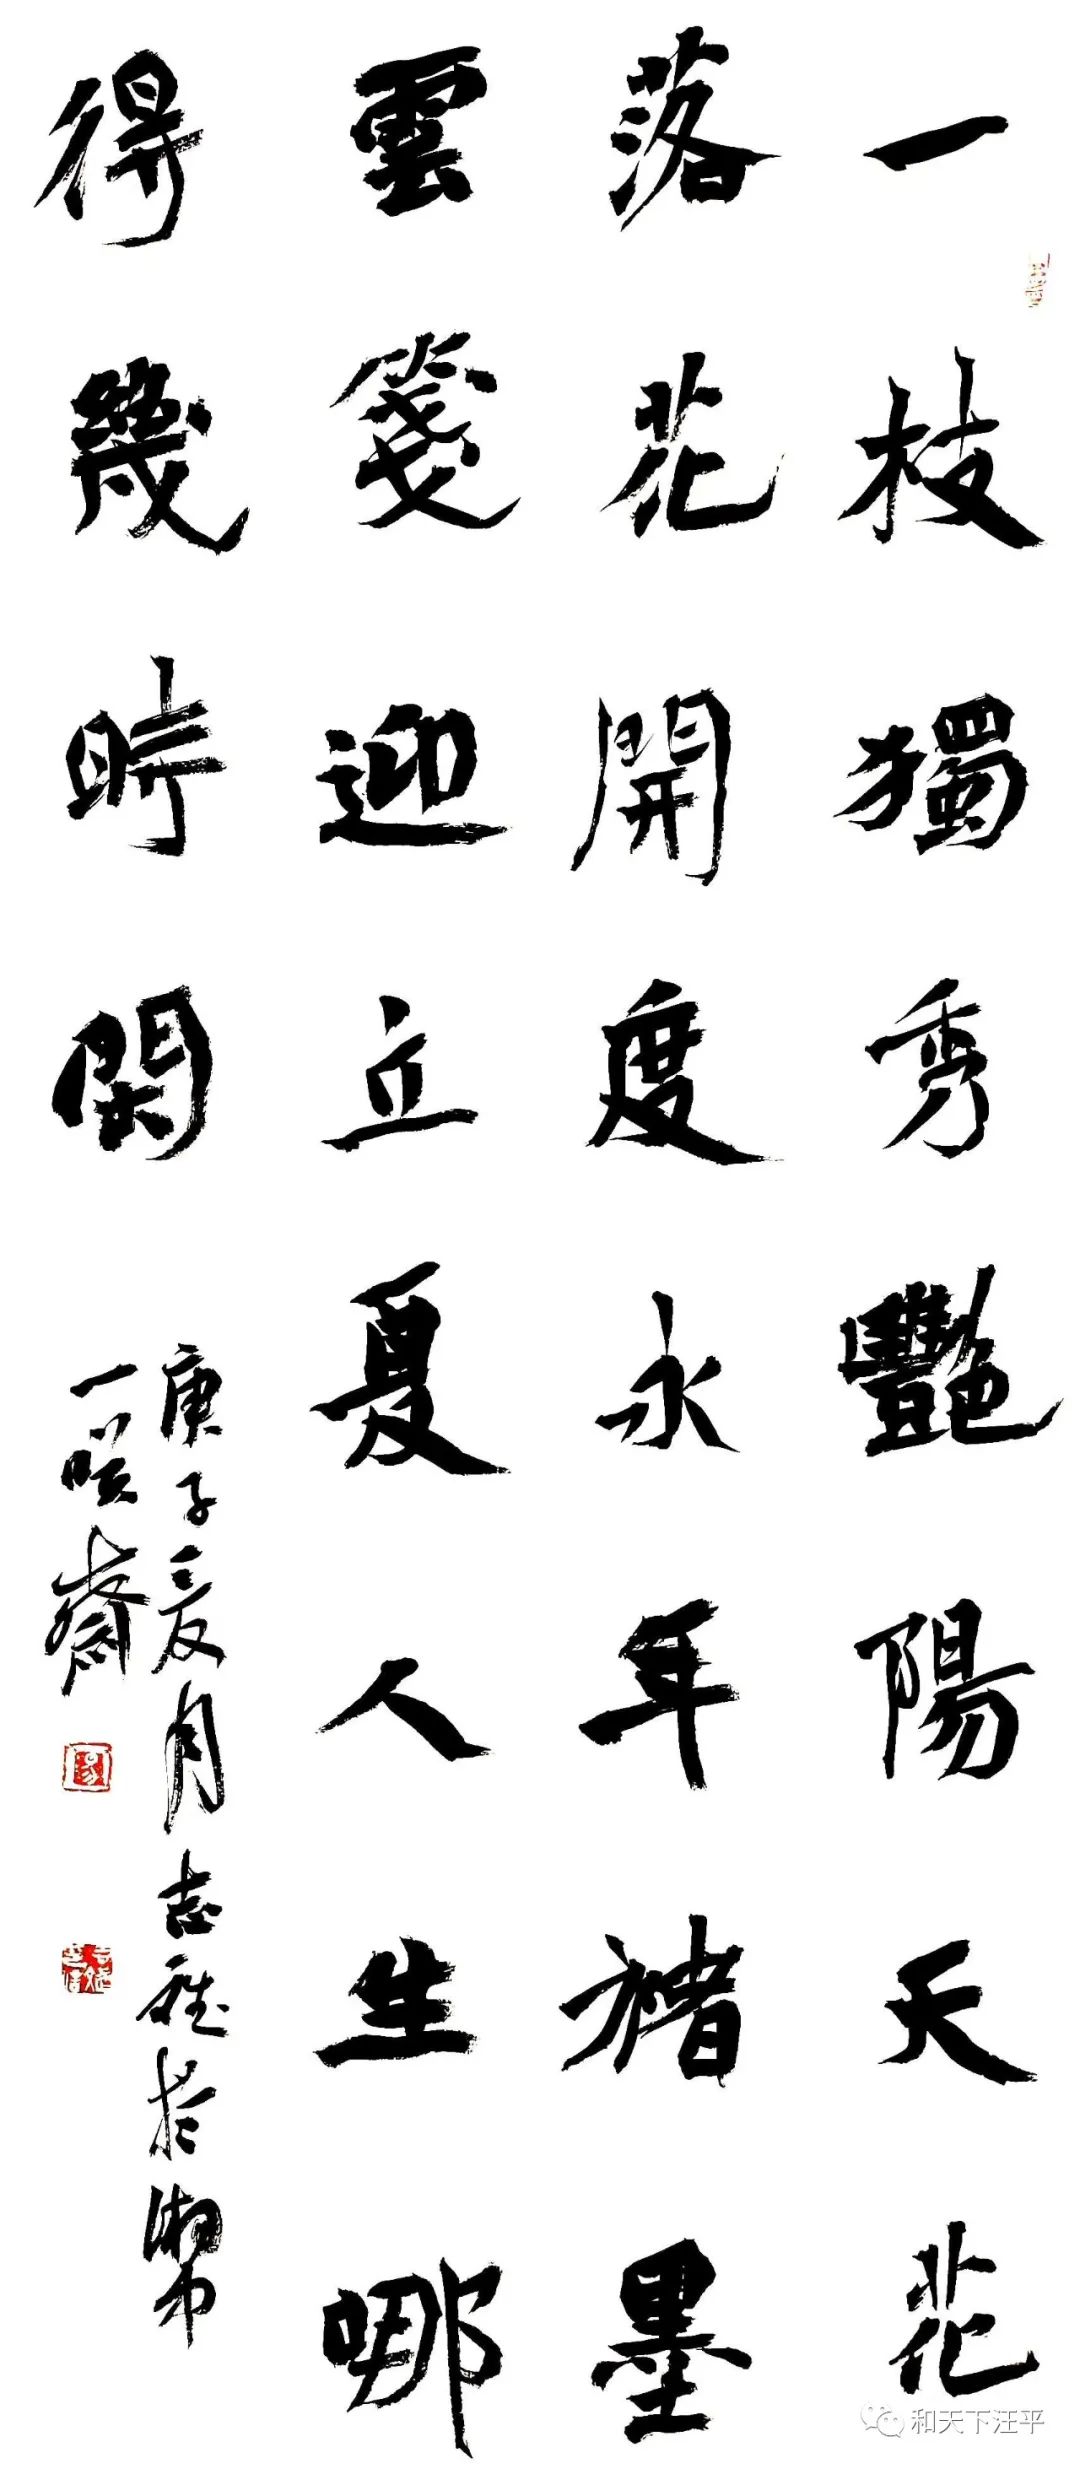 一枝獨秀艷陽天花
落花開度永年楮墨
雲箋迎立夏人生哪
得幾時閑
庚子夏月志雄於湘
一笑齋
和天下汪平